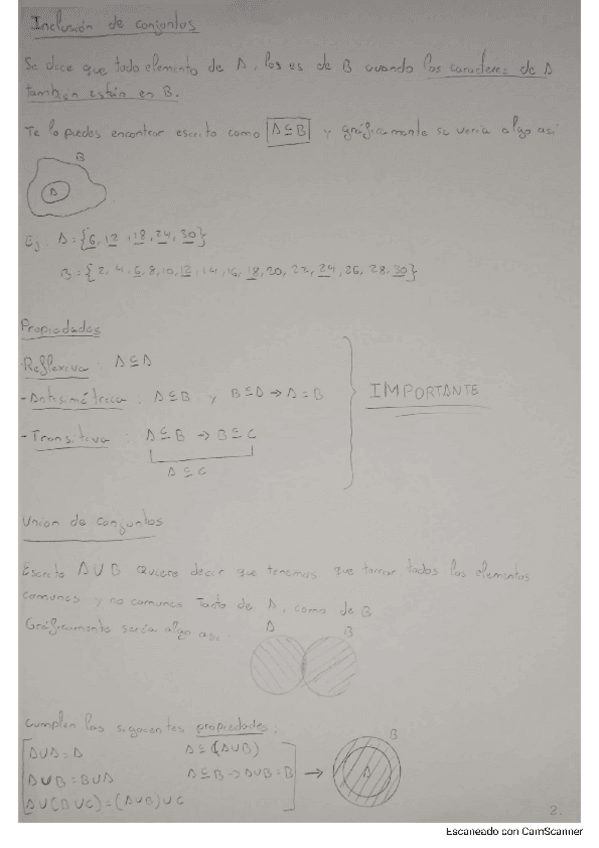 Inclusión de conjuntos
Se dice que todo elemento de A, los es de B cuando los caracteres de A
tambien están en B.
Te lo puedes encontrar escrito como A⊆B y gráficamente se vería algo así
B
A
Ej: A={6,12,18,24,30}
B={2,4,6,8,10,12,14,16,18,20,22,24,26,28,30}
Propiedades
Reflexiva: A⊆A
-Antisimétrica: A⊆B y B⊆A→A=B
IMPORTANTE
-Transitiva: A⊆B → B⊆C
A⊆C
Union de conjuntos
Escrito A∪B Quiere decir que tenemos que tomar todos los elementos
comunes y no comunes Tanto de A, como de B
Gráficamente sería algo así
A B
Cumplen las siguientes propiedades:
A∪A=A A⊆(A∪B)
A∪B=B∪A A⊆B→A∪B=B → A B
A∪(B∪C)=(A∪B)∪C
2.
Escaneado con CamScanner